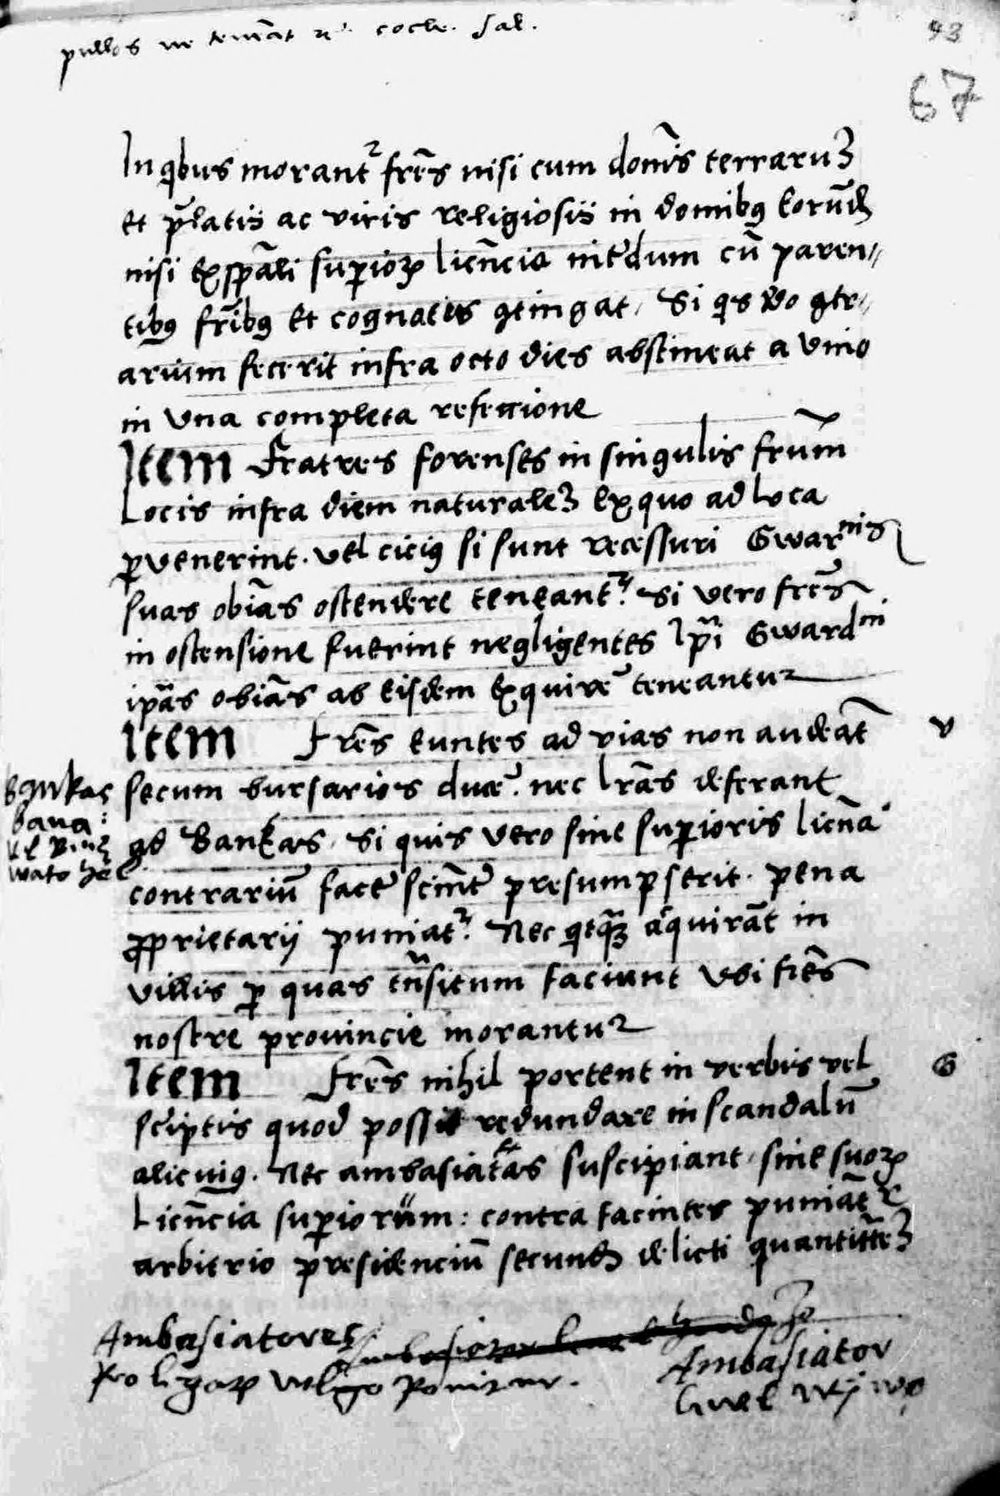 pullos
93
67
In qbus morant᷑ fres nisi cum domis terraruȝ
Et platis ac viris religiosis in domibꝰ Eorūd
nisi Exspāli supioꝝ licncia interdum cū paren„
tibꝰ fribꝰ Et cognatis ꝯtingat. Si qs vo ꝯtr„
arium fecerit infra octo dies abstineat a vino
in Una completa refectione
Item Fratres forenses in singulis frum
Locis infra diem naturaleȝ Ex quo ad loca
ꝑvenerint. vel ciciꝰ si sunt recessuri Gwarnis
suas obias ostendere teneant᷑. Si vero fres
in ostensione fuerint negligentes Ipi Gwardni
ipas obias ab Eisdem Exquire teneantur
Item Fres Euntes ad vias non audeāt v
secum bursarios duce. nec lras deferant
ad Bankas. Si quis vero sine supioris licna
contrariū face scinte presumpserit. pena
ꝓprietarij puniat᷑. Nec qtqȝ acquirāt in
villis ꝑ quas tnsitum faciunt Ubi fres
nostre prouincie morantur
Item Fres nihil portent in verbis vel 6
scriptis quod possit redundare in scandalū
alicuiꝰ. Nec ambasiatas suscipiant. sine suoꝝ
Licncia supiorum: contra facintes puniāt᷑
arbitrio presidenciū secund delicti quantitateȝ
Ambasiatores
Ambasiator